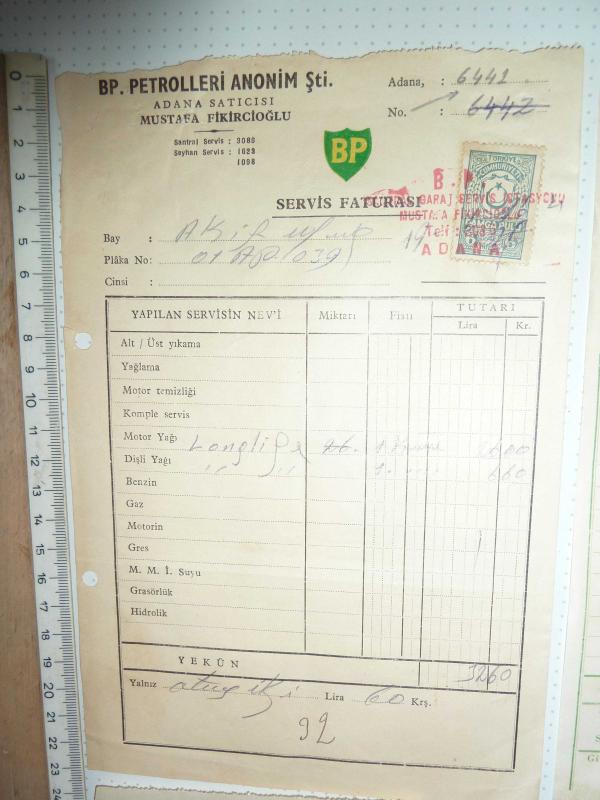 BP. PETROLLERİ ANONİM Şti.
ADANA SATICISI
MUSTAFA FİKİRCİOĞLU
Santral Servis : 3080
Seyhan Servis : 1623
1098
Adana, : 6441
No. : 6442
BP
TÜRKİYE
CUMHURİYETİ
B. P.
GARAJ SERVİS İSTASYONU
MUSTAFA FİKİRCİOĞLU
Telf :
ADANA
SERVİS FATURASI
Bay : AKİF
Plâka No: 01 039
Cinsi :
YAPILAN SERVİSİN NEV'İ Miktarı Fiatı TUTARI
Lira Kr.
Alt / Üst yıkama
Yağlama
Motor temizliği
Komple servis
Motor Yağı Longlife 2600
Dişli Yağı " " 660
Benzin
Gaz
Motorin
Gres
M. M. İ. Suyu
Grasörlük
Hidrolik
YEKÜN 3260
Yalnız otuz iki Lira 60 Krş.
92